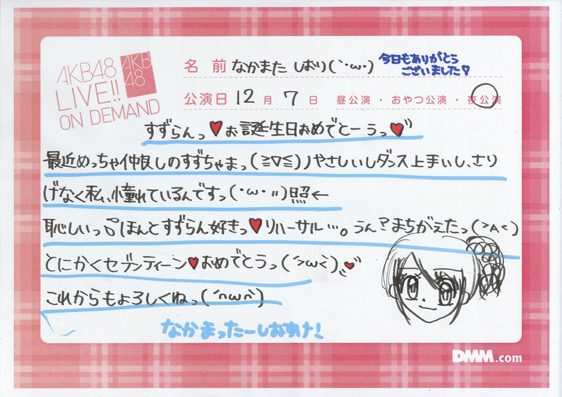 AKB48
LIVE!!
ON DEMAND
AKB
48
名 前 なかまた しおり(｀･ω･)
今日もありがとう
ございました♡
公演日 12 月 7 日 昼公演・おやつ公演・夜公演
すずらんっ♥お誕生日おめでとーうっ♥
最近めっちゃ仲良しのすずちゃまっ(≧∇≦)ﾉやさしいしダンス上手いし、さり
げなく私、憧れているんですっ(･ω･〃)照←
恥しいっ ほんとすずらん好きっ♥リハーサル…。うん?まちがえたっ(>A<)
とにかくセブンティーン♥おめでとうっ(´>ω<｀)
これからもよろしくねっ(´∩ω∩｀)
なかまったーしおりん!
DMM.com